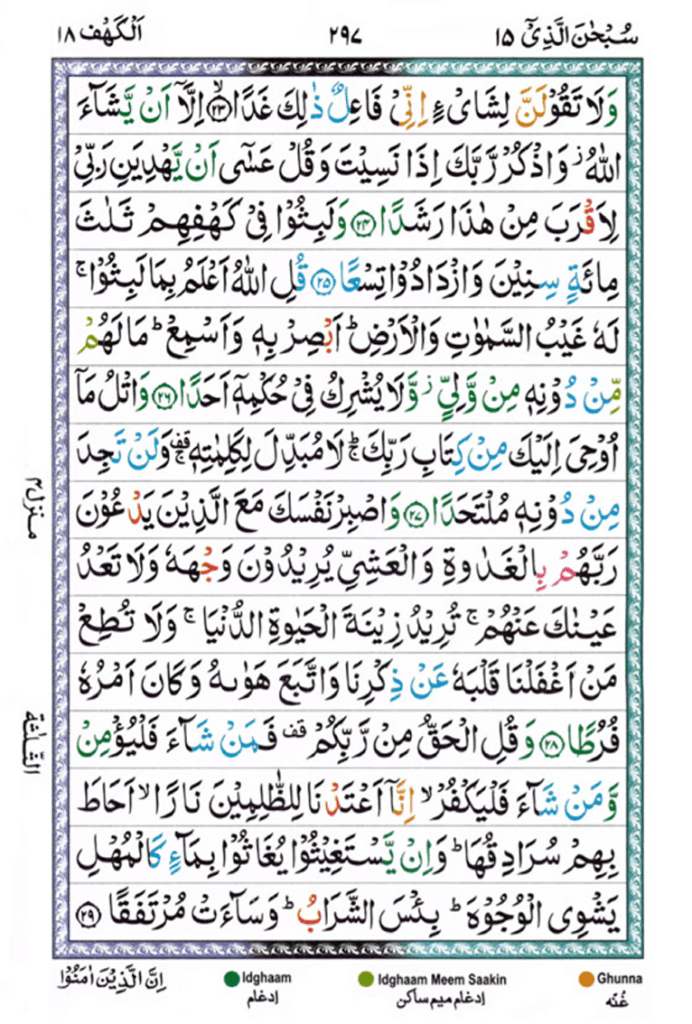 سُبْحٰنَ الَّذِیْۤ ۱۵ ۲۹۷ اَلْكَهْف ۱۸
وَلَا تَقُوْلَنَّ لِشَایْءٍ اِنِّیْ فَاعِلٌ ذٰلِكَ غَدًاۙ ﴿۲۳﴾ اِلَّاۤ اَنْ یَّشَآءَ
اللّٰهُ ؗ وَاذْكُرْ رَّبَّكَ اِذَا نَسِیْتَ وَقُلْ عَسٰۤی اَنْ یَّهْدِیَنِ رَبِّیْ
لِاَقْرَبَ مِنْ هٰذَا رَشَدًا ﴿۲۴﴾ وَلَبِثُوْا فِیْ كَهْفِهِمْ ثَلٰثَ
مِائَةٍ سِنِیْنَ وَازْدَادُوْا تِسْعًا ﴿۲۵﴾ قُلِ اللّٰهُ اَعْلَمُ بِمَا لَبِثُوْا ۚ
لَهٗ غَیْبُ السَّمٰوٰتِ وَالْاَرْضِ ؕ اَبْصِرْ بِهٖ وَاَسْمِعْ ؕ مَا لَهُمْ
مِّنْ دُوْنِهٖ مِنْ وَّلِیٍّ ؗ وَّلَا یُشْرِكُ فِیْ حُكْمِهٖۤ اَحَدًا ﴿۲۶﴾ وَاتْلُ مَاۤ
اُوْحِیَ اِلَیْكَ مِنْ كِتَابِ رَبِّكَ ؕۚ لَا مُبَدِّلَ لِكَلِمٰتِهٖ ۚ قف وَلَنْ تَجِدَ
مِنْ دُوْنِهٖ مُلْتَحَدًا ﴿۲۷﴾ وَاصْبِرْ نَفْسَكَ مَعَ الَّذِیْنَ یَدْعُوْنَ
رَبَّهُمْ بِالْغَدٰوةِ وَالْعَشِیِّ یُرِیْدُوْنَ وَجْهَهٗ وَلَا تَعْدُ
عَیْنٰكَ عَنْهُمْ ۚ تُرِیْدُ زِیْنَةَ الْحَیٰوةِ الدُّنْیَا ۚ وَلَا تُطِعْ
مَنْ اَغْفَلْنَا قَلْبَهٗ عَنْ ذِكْرِنَا وَاتَّبَعَ هَوٰىهُ وَكَانَ اَمْرُهٗ
فُرُطًا ﴿۲۸﴾ وَقُلِ الْحَقُّ مِنْ رَّبِّكُمْ قف فَمَنْ شَآءَ فَلْیُؤْمِنْ
وَّمَنْ شَآءَ فَلْیَكْفُرْ ۙ اِنَّاۤ اَعْتَدْنَا لِلظّٰلِمِیْنَ نَارًا ۙ اَحَاطَ
بِهِمْ سُرَادِقُهَا ؕ وَاِنْ یَّسْتَغِیْثُوْا یُغَاثُوْا بِمَآءٍ كَالْمُهْلِ
یَشْوِی الْوُجُوْهَ ؕ بِئْسَ الشَّرَابُ ؕ وَسَآءَتْ مُرْتَفَقًا ﴿۲۹﴾
منزل ۴
الثلٰثة
Ghunna غُنّه
Idghaam Meem Saakin ادغام میم ساکن
Idghaam ادغام
اِنَّ الَّذِیْنَ اٰمَنُوْا